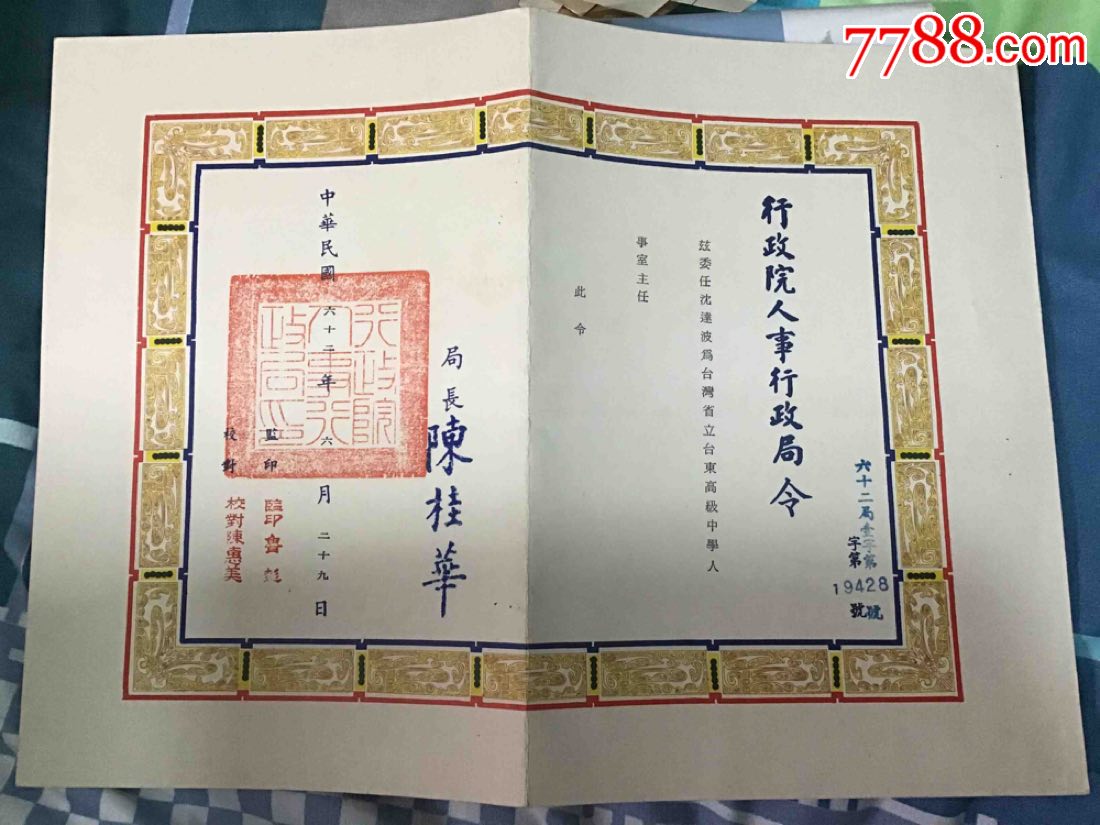 7788.com
行政院人事行政局令
六十二局壹字第
字第
19428
號
號
茲委任沈達波爲台灣省立台東高級中學人
事室主任
此令
局長陳桂華
中華民國六十二年六月二十九日
行政院
人事行
政局印
監印
監印魯
校對
校對陳惠美